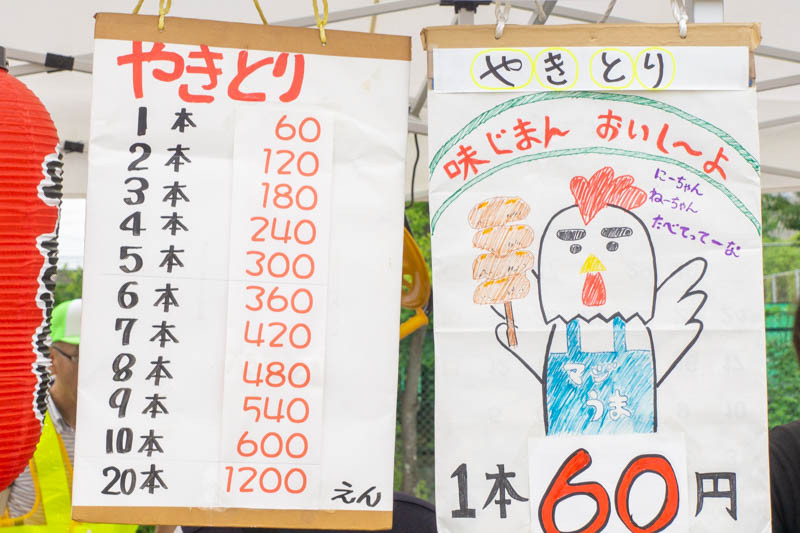 やきとり
1本 60
2本 120
3本 180
4本 240
5本 300
6本 360
7本 420
8本 480
9本 540
10本 600
20本 1200
えん
やきとり
味じまん おいし〜よ
にーちゃん
ねーちゃん
たべてってーな
マジ
うま
1本60円